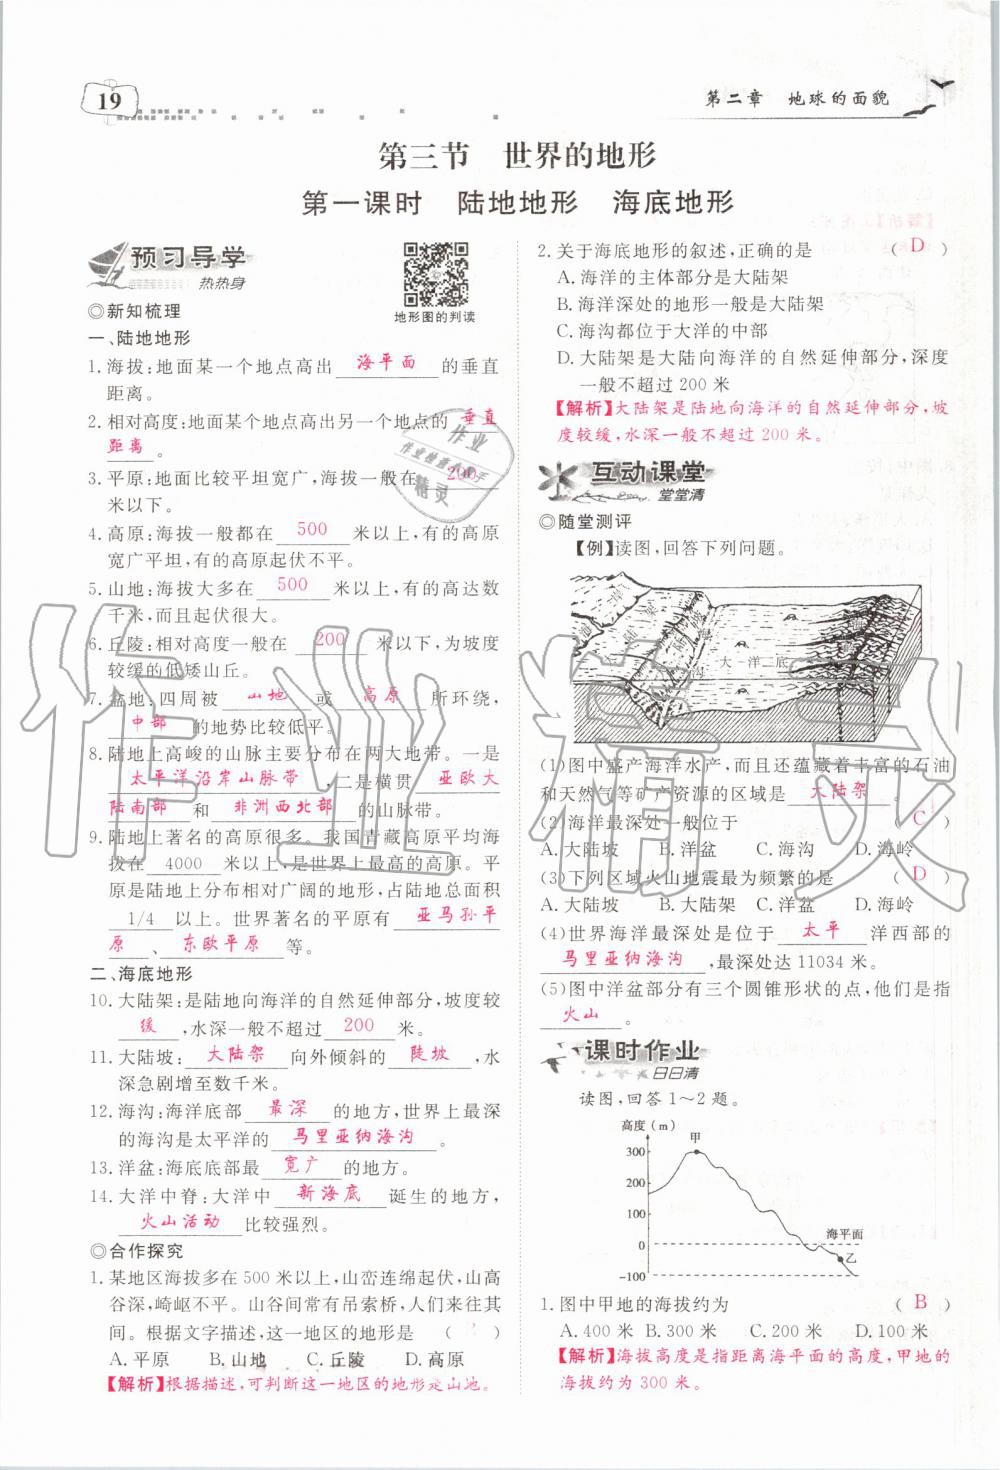 19
第二章 地球的面貌
第三节 世界的地形
第一课时 陆地地形 海底地形
预习导学
热热身
地形图的判读
◎新知梳理
一、陆地地形
1. 海拔:地面某一个地点高出 海平面 的垂直
距离。
2. 相对高度:地面某个地点高出另一个地点的 垂直
距离 。
3. 平原:地面比较平坦宽广,海拔一般在 200
米以下。
4. 高原:海拔一般都在 500 米以上,有的高原
宽广平坦,有的高原起伏不平。
5. 山地:海拔大多在 500 米以上,有的高达数
千米,而且起伏很大。
6. 丘陵:相对高度一般在 200 米以下,为坡度
较缓的低矮山丘。
7. 盆地:四周被 山地 或 高原 所环绕,
中部 的地势比较低平。
8. 陆地上高峻的山脉主要分布在两大地带。一是
太平洋沿岸山脉带 ,二是横贯 亚欧大
陆南部 和 非洲西北部 的山脉带。
9. 陆地上著名的高原很多。我国青藏高原平均海
拔在 4000 米以上,是世界上最高的高原。平
原是陆地上分布相对广阔的地形,占陆地总面积
1/4 以上。世界著名的平原有 亚马孙平
原 、 东欧平原 等。
二、海底地形
10. 大陆架:是陆地向海洋的自然延伸部分,坡度较
缓 ,水深一般不超过 200 米。
11. 大陆坡: 大陆架 向外倾斜的 陡坡 ,水
深急剧增至数千米。
12. 海沟:海洋底部 最深 的地方,世界上最深
的海沟是太平洋的 马里亚纳海沟 。
13. 洋盆:海底底部最 宽广 的地方。
14. 大洋中脊:大洋中 新海底 诞生的地方,
火山活动 比较强烈。
◎合作探究
1. 某地区海拔多在 500 米以上,山峦连绵起伏,山高
谷深,崎岖不平。山谷间常有吊索桥,人们来往其
间。根据文字描述,这一地区的地形是 ( )
A. 平原 B. 山地 C. 丘陵 D. 高原
【解析】根据描述,可判断这一地区的地形是山地。
2. 关于海底地形的叙述,正确的是 ( D )
A. 海洋的主体部分是大陆架
B. 海洋深处的地形一般是大陆架
C. 海沟都位于大洋的中部
D. 大陆架是大陆向海洋的自然延伸部分,深度
一般不超过 200 米
【解析】大陆架是陆地向海洋的自然延伸部分,坡
度较缓,水深一般不超过 200 米。
互动课堂
堂堂清
◎随堂测评
【例】读图,回答下列问题。
大 洋 底
(1)图中盛产海洋水产,而且还蕴藏着丰富的石油
和天然气等矿产资源的区域是 大陆架 。
(2)海洋最深处一般位于 ( C )
A. 大陆坡 B. 洋盆 C. 海沟 D. 海岭
(3)下列区域火山地震最为频繁的是 ( D )
A. 大陆坡 B. 大陆架 C. 洋盆 D. 海岭
(4)世界海洋最深处是位于 太平 洋西部的
马里亚纳海沟 ,最深处达 11034 米。
(5)图中洋盆部分有三个圆锥形状的点,他们是指
火山 。
课时作业
日日清
读图,回答 1～2 题。
高度(m)
甲
300
200
100
海平面
0
乙
-100
1. 图中甲地的海拔约为 ( B )
A. 400 米 B. 300 米 C. 200 米 D. 100 米
【解析】海拔高度是指距离海平面的高度,甲地的
海拔约为 300 米。
作业
作业检查小助手
精灵
作业精灵